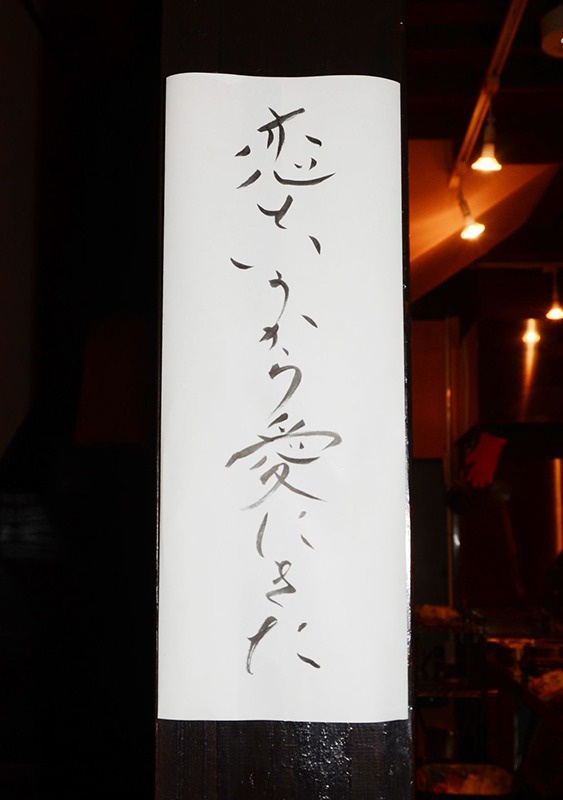 恋というから愛にきた